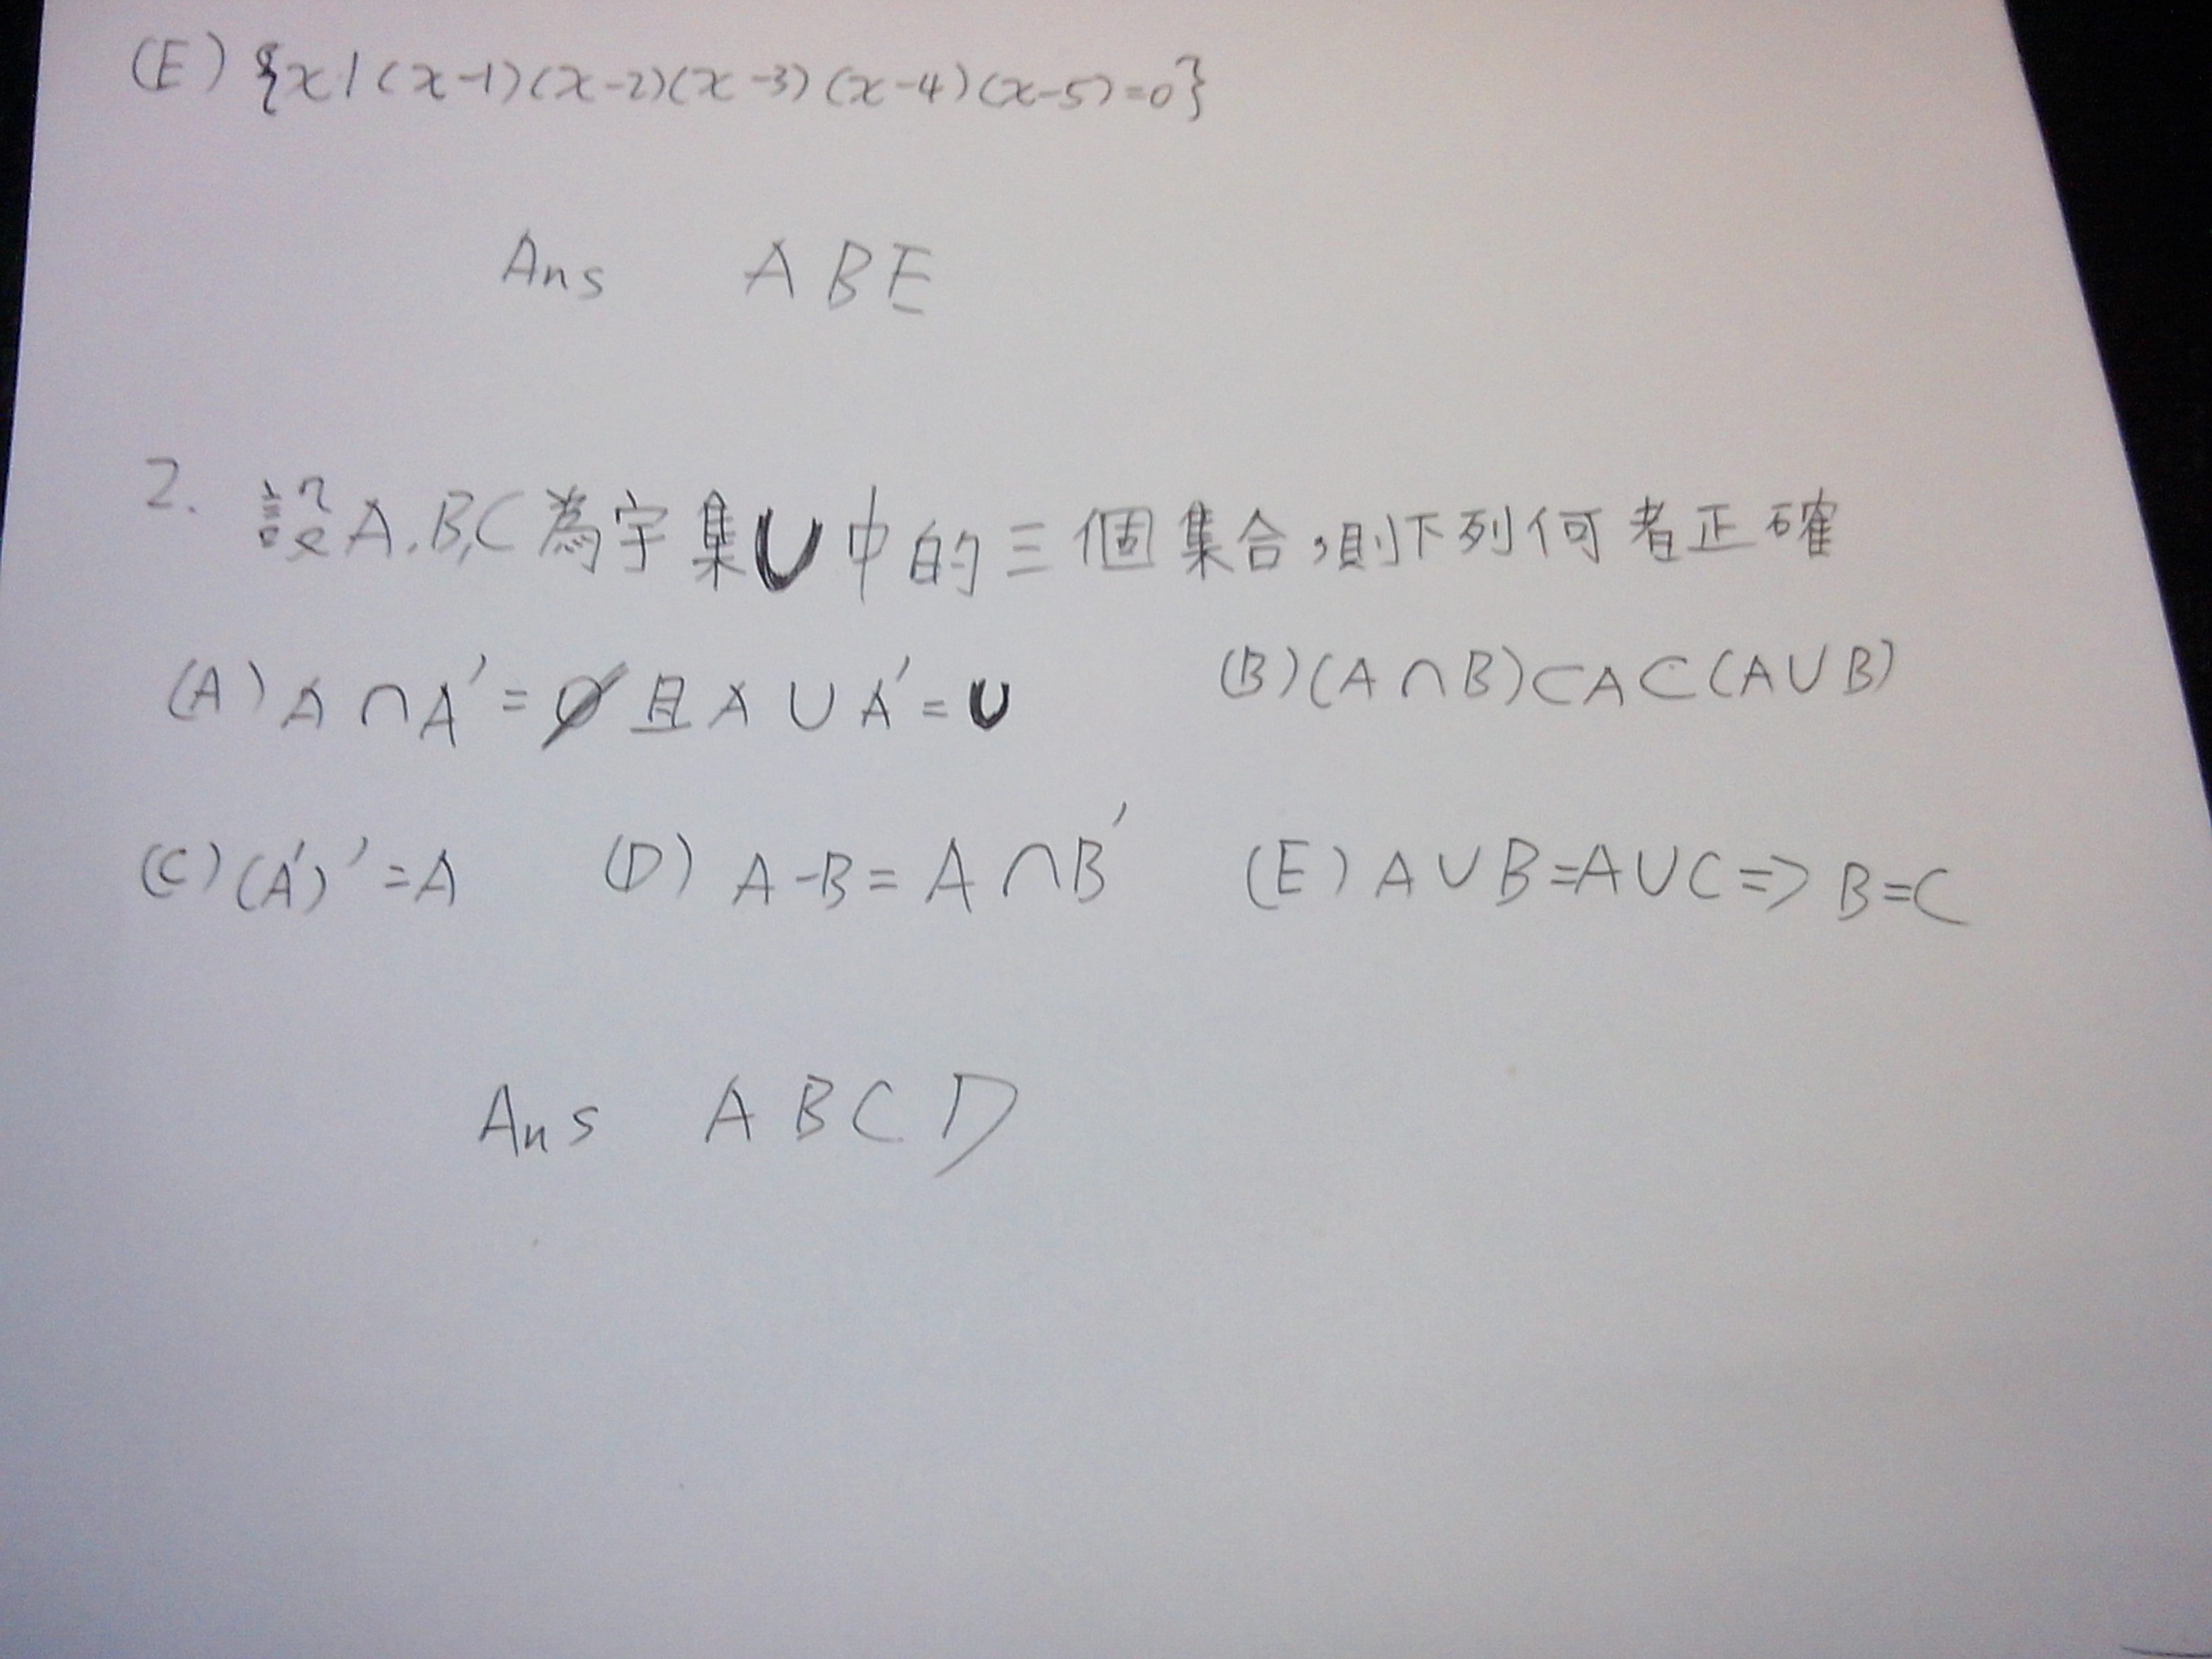 (E) {x | (x-1)(x-2)(x-3)(x-4)(x-5)=0}
Ans A B E
2. 設A,B,C為宇集U中的三個集合,則下列何者正確
(A) A∩A'=∅且A∪A'=U (B) (A∩B)⊂A⊂(A∪B)
(C) (A')'=A (D) A-B=A∩B' (E) A∪B=A∪C⇒B=C
Ans A B C D